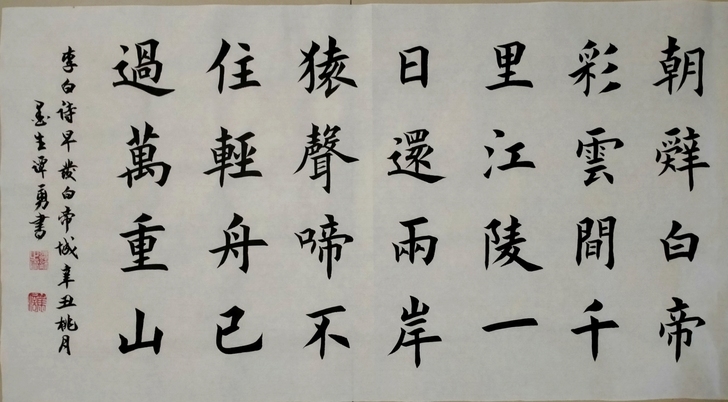 朝辭白帝
彩雲間千
里江陵一
日還兩岸
猿聲啼不
住輕舟已
過萬重山
李白詩早發白帝城辛丑桃月
墨生譚勇書